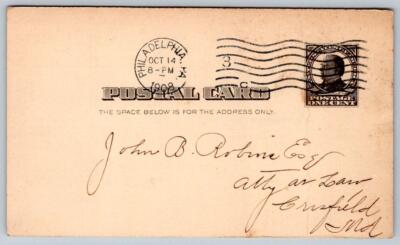 PHILADELPHIA
OCT 14
8-PM
1908
3
POSTAGE
ONE CENT
POSTAL CARD
THE SPACE BELOW IS FOR THE ADDRESS ONLY.
John B. Robins Esq
Atty at Law
Crisfield
Md